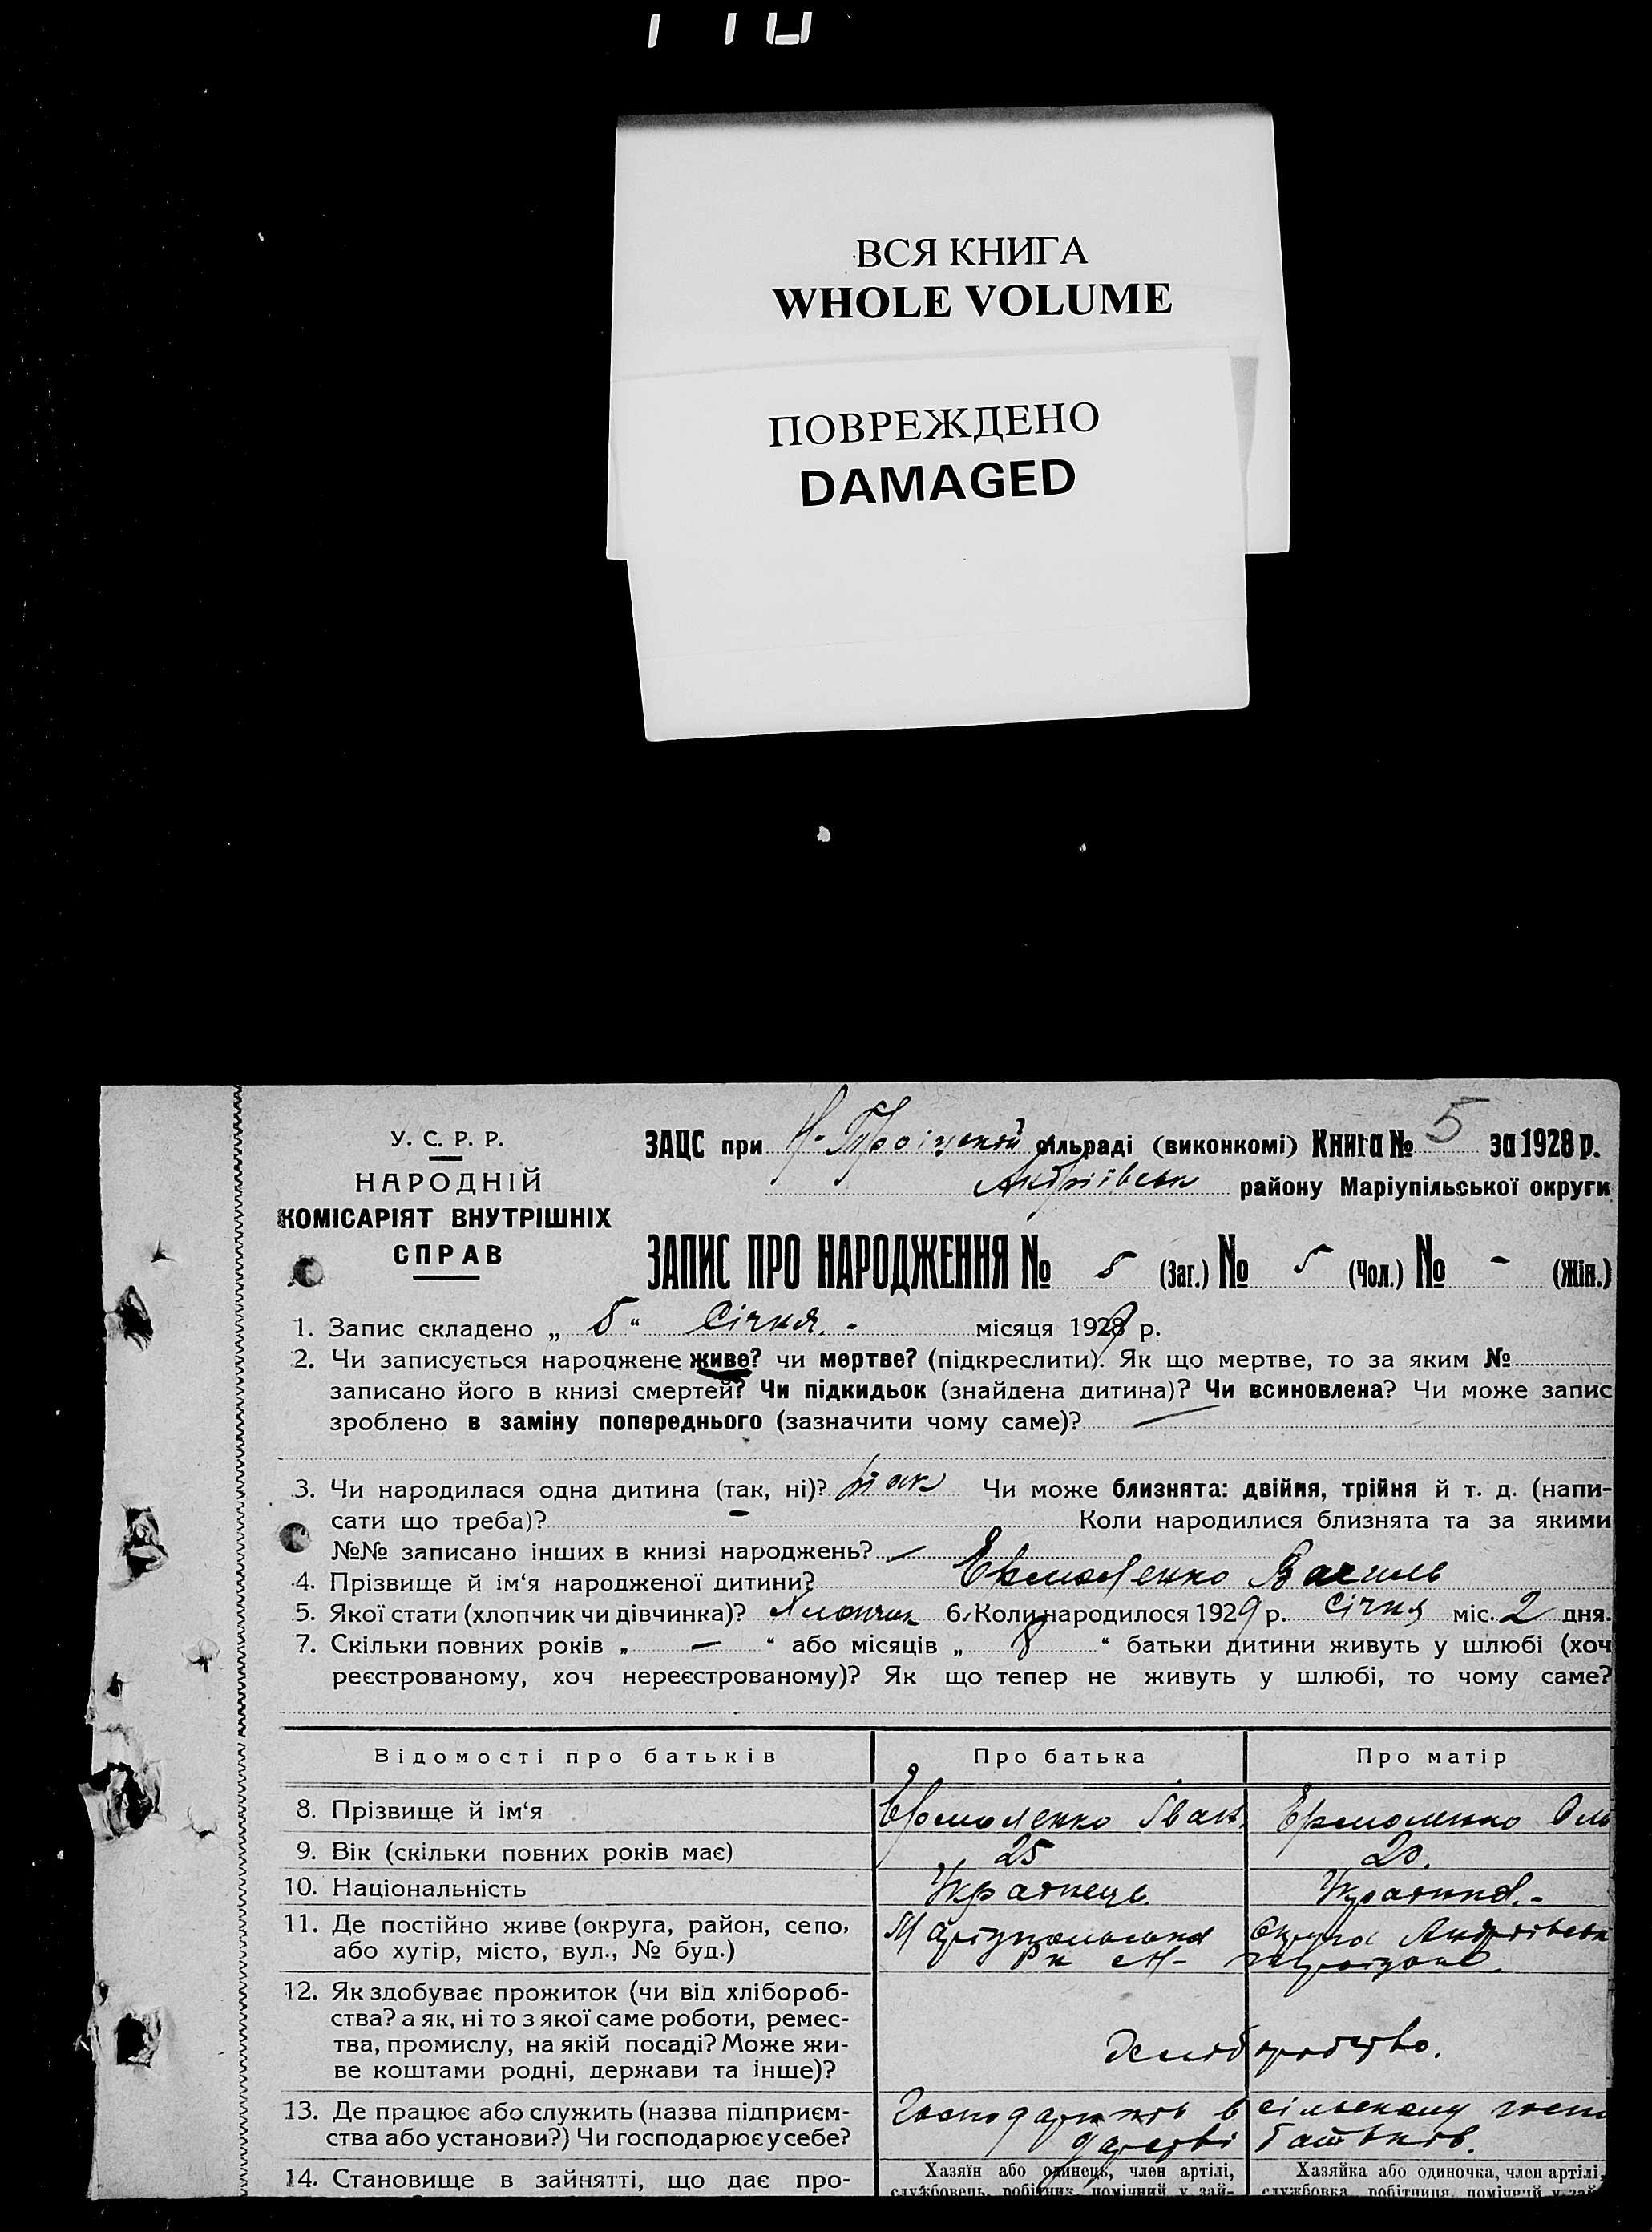 ВСЯ КНИГА
WHOLE VOLUME
ПОВРЕЖДЕНО
DAMAGED
У. С. Р. Р.
НАРОДНІЙ
КОМІСАРІЯТ ВНУТРІШНІХ
СПРАВ
ЗАЦС при Н-Троіцькой сільраді (виконкомі) Книга № 5 за 1928 р.
Андріївськ району Маріупільської округи
ЗАПИС ПРО НАРОДЖЕННЯ № 5 (Заг.) № 5 (Чол.) № - (Жін.)
1. Запис складено „ 5 “ Січня. - місяця 1929 р.
2. Чи записується народжене живе? чи мертве? (підкреслити). Як що мертве, то за яким №
записано його в книзі смертей? Чи підкидьок (знайдена дитина)? Чи всиновлена? Чи може запис
зроблено в заміну попереднього (зазначити чому саме)? —
3. Чи народилася одна дитина (так, ні)? так Чи може близнята: двійня, трійня й т. д. (напи-
сати що треба)? - Коли народилися близнята та за якими
№№ записано інших в книзі народжень? —
4. Прізвище й ім‘я народженої дитини? Ермоленко Василь
5. Якої стати (хлопчик чи дівчинка)? Хлопчик 6. Коли народилося 1929 р. Січня міс. 2 дня.
7. Скільки повних років „ — “ або місяців „ 8 “ батьки дитини живуть у шлюбі (хоч
реєстрованому, хоч нереєстрованому)? Як що тепер не живуть у шлюбі, то чому саме?
Відомості про батьків Про батька Про матір
8. Прізвище й ім‘я Ермоленко Іван. Ермоленко Оль
9. Вік (скільки повних років має) 25 20.
10. Національність Українець. Українка. -
11. Де постійно живе (округа, район, село, Маріупольська Округа Андріївськ
або хутір, місто, вул., № буд.) Рн Н-Троіцьке.
12. Як здобуває прожиток (чи від хлібороб-
ства? а як, ні то з якої саме роботи, ремес-
тва, промислу, на якій посаді? Може жи- Хліборобство.
ве коштами родні, держави та інше)?
13. Де працює або служить (назва підприєм- Господарють в сільскому госпо
ства або установи?) Чи господарює у себе? дарстві батьків.
14. Становище в зайнятті, що дає про- Хазяїн або одинець, член артілі, Хазяйка або одиночка, член артілі,
службовець, робітник, помічний у зай- службовка, робітниця, помічний у зай